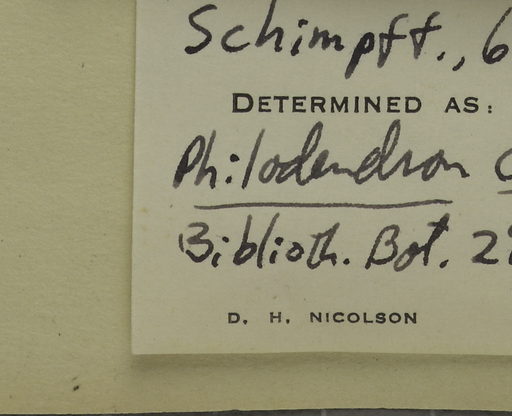 Schimpff., 6
DETERMINED AS:
Philodendron
Biblioth. Bot. 29
D. H. NICOLSON